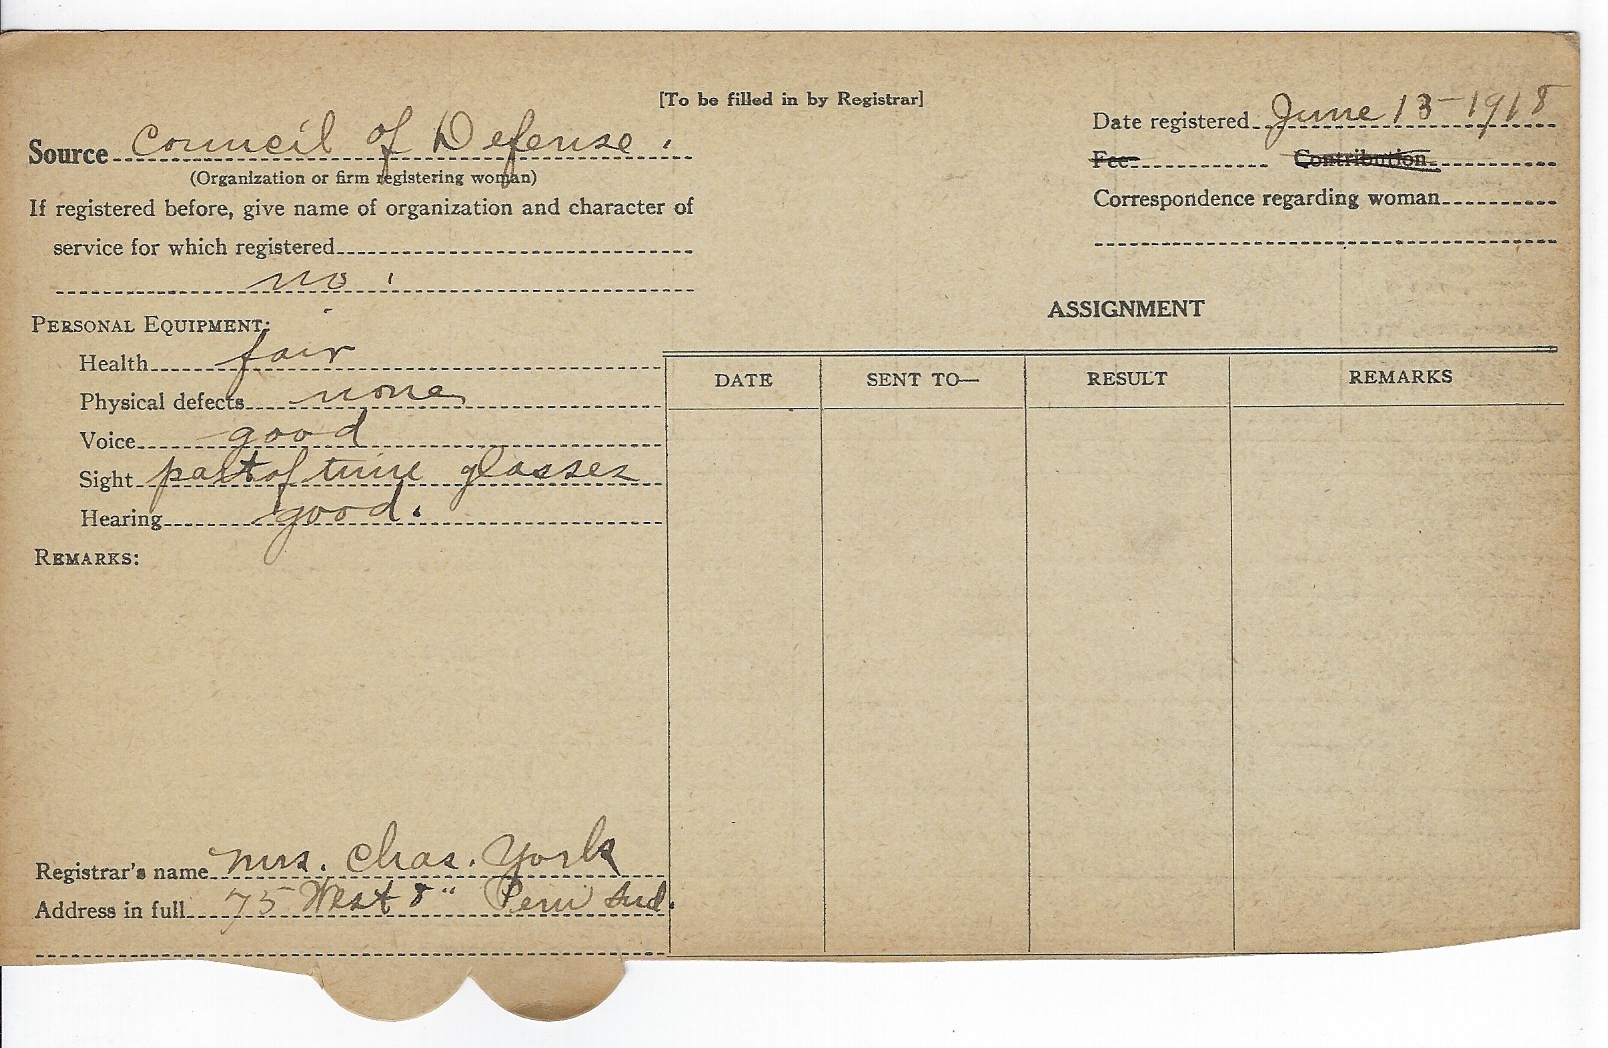 [To be filled in by Registrar]
Source Council of Defense.
(Organization or firm registering woman)
If registered before, give name of organization and character of
service for which registered
no.
Date registered June 13-1918
Fee Contribution
Correspondence regarding woman
PERSONAL EQUIPMENT:
Health fair
Physical defects none
Voice good
Sight part of time glasses
Hearing good.
REMARKS:
ASSIGNMENT
DATE SENT TO— RESULT REMARKS
Registrar's name Mrs. Chas. York
Address in full 75 West 8" Peru Ind.